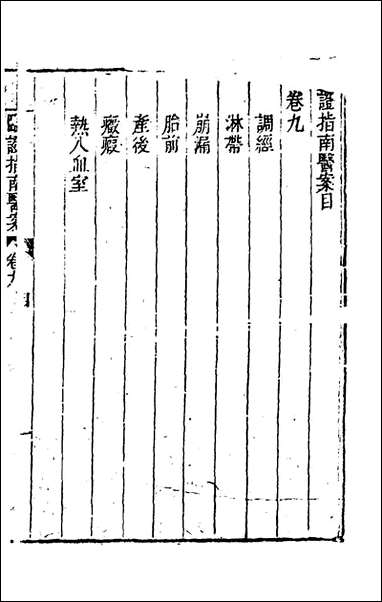 證指南醫案目
卷九
調經
淋帶
崩漏
胎前
產後
癥瘕
熱入血室
證指南醫案
卷九